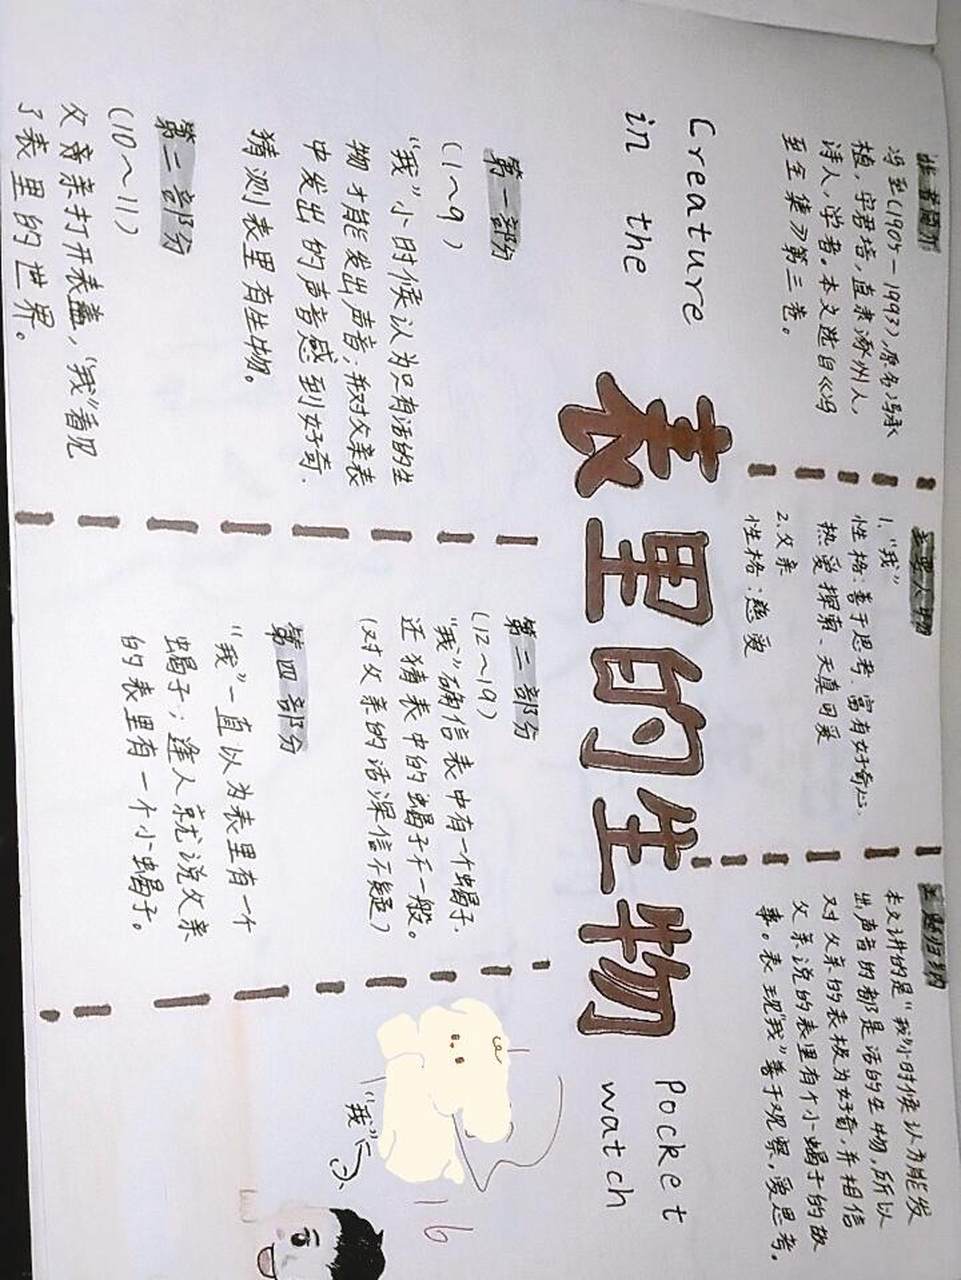 作者简介
冯至(1905-1993),原名冯承
植,字君培,直隶涿州人,
诗人,学者。本文选自《冯
至全集》第三卷。
主要人物
1.“我”
性格:善于思考、富有好奇心、
热爱探索、天真可爱
2.父亲
性格:慈爱
主题归纳
本文讲的是“我”小时候认为能发
出声音的都是活的生物,所以
对父亲的表极为好奇,并相信
父亲说的表里有个小蝎子的故
事。表现“我”善于观察,爱思考。
Creature
in the
表里的生物
Pocket
watch
第一部份
(1~9)
“我”小时候认为只有活的生
物才能发出声音,并对父亲表
中发出的声音感到好奇.
猜测表里有生物。
第二部分
(10~11)
父亲亲打开表盖,“我”看见
了表里的世界。
第二部分
(12~19)
“我”确信表中有一个蝎子.
还猜表中的蝎子千一般。
(对父亲的话深信不疑)
第四部分
“我”一直以为表里有一个
蝎子;逢人就说父亲
的表里有一个小蝎子。
“我”
16